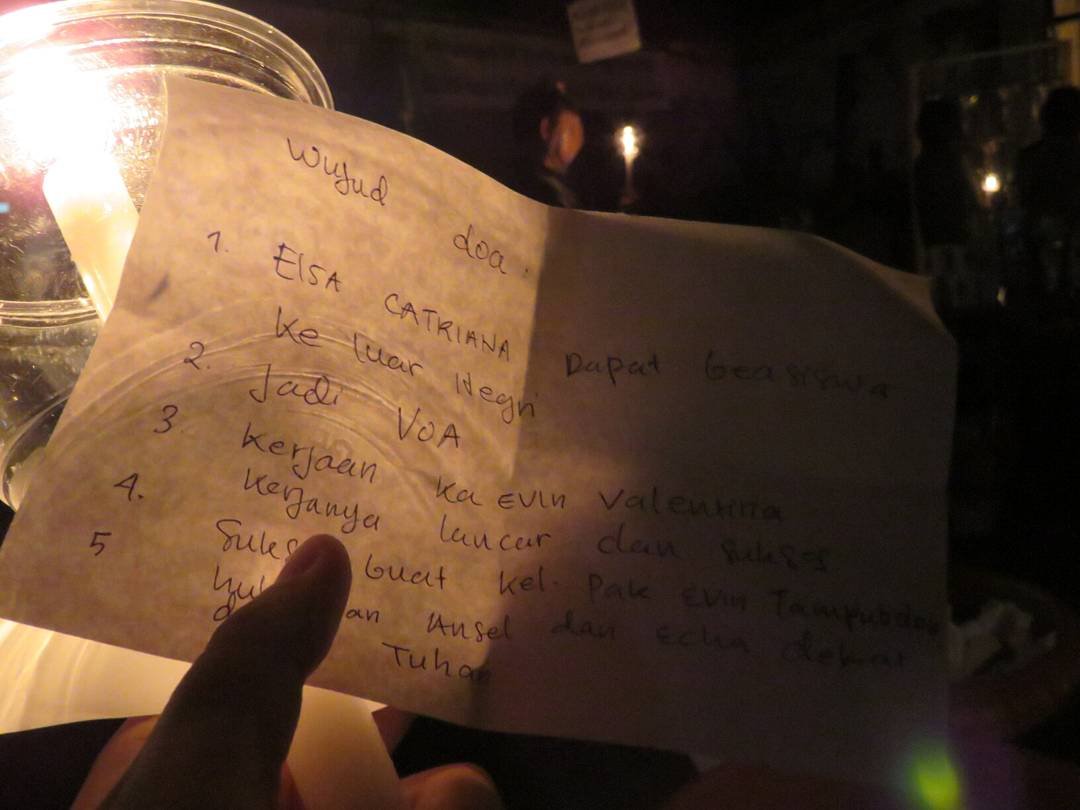 Wujud doa.
1. Elsa CATRIANA Dapat beasiswa
Ke luar Negri
2. Jadi VOA
3. Kerjaan Ka EVIN Valentina
4. Kerjanya lancar dan sukses
5 Suks buat Kel. Pak EVIN Tampubolon
an Ansel dan Echa dekat
Tuhan